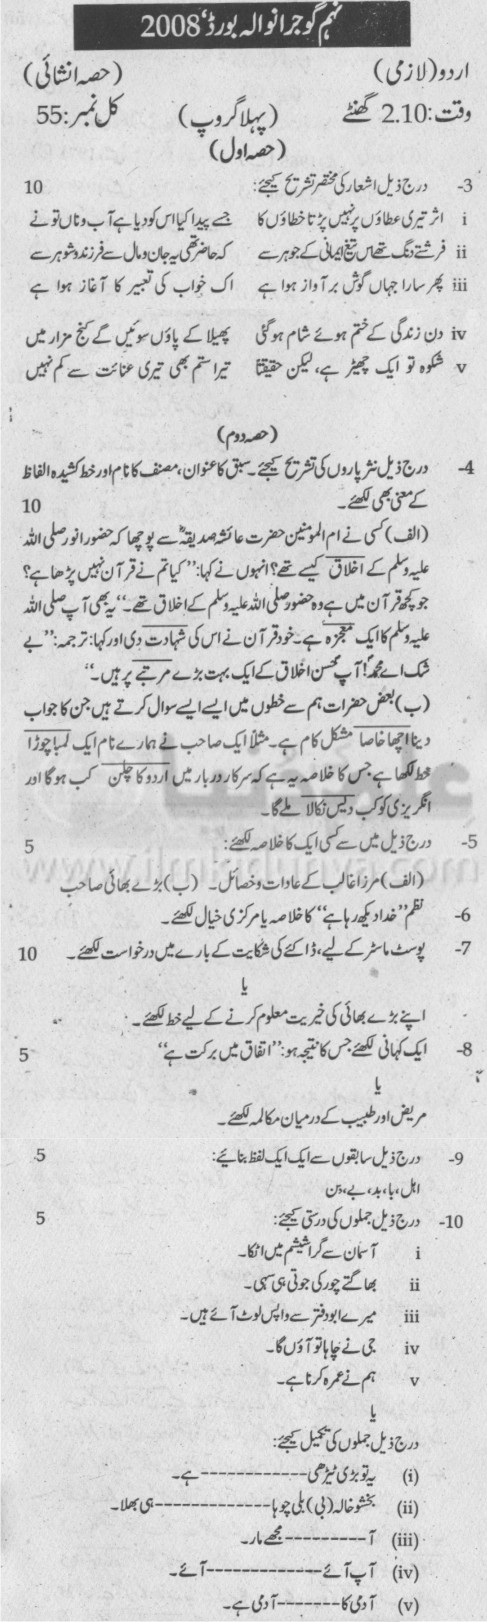 نہم گوجرانوالہ بورڈ، 2008
اردو (لازمی) (حصہ انشائی)
وقت: 2.10 گھنٹے (پہلا گروپ) کل نمبر: 55
(حصہ اول)
3- درج ذیل اشعار کی مختصر تشریح کیجئے: 10
i اثر تیری عطاؤں پر نہیں پڑتا خطاؤں کا جسے پیدا کیا اس کو دیا ہے آب و ناں تو نے
ii فرشتے دنگ تھے اس تیغ ایمانی کے جوہر سے کہ حاضر تھی یہ جان و مال سے فرزند و شوہر سے
iii پھر سارا جہاں گوش بر آواز ہوا ہے اک خواب کی تعبیر کا آغاز ہوا ہے
iv دن زندگی کے ختم ہوئے شام ہو گئی پھیلا کے پاؤں سوئیں گے کنج مزار میں
v شکوہ تو ایک چھیڑ ہے، لیکن حقیقتاً تیرا ستم بھی تیری عنائت سے کم نہیں
(حصہ دوم)
4- درج ذیل نثر پاروں کی تشریح کیجئے۔ سبق کا عنوان، مصنف کا نام اور خط کشیدہ الفاظ
کے معنی بھی لکھئے۔ 10
(الف) کسی نے ام المومنین حضرت عائشہ صدیقہؓ سے پوچھا کہ حضور انور صلی اللہ
علیہ وسلم کے اخلاق کیسے تھے؟ انہوں نے کہا: ”کیا تم نے قرآن نہیں پڑھا ہے؟
جو کچھ قرآن میں ہے وہ حضور صلی اللہ علیہ وسلم کے اخلاق تھے۔“ یہ بھی آپ صلی اللہ
علیہ وسلم کا ایک معجزہ ہے۔ خود قرآن نے اس کی شہادت دی اور کہا: ترجمہ: ”بے
شک اے محمدؐ! آپ حُسن اخلاق کے ایک بہت بڑے مرتبے پر ہیں۔“
(ب) بعض حضرات ہم سے خطوں میں ایسے ایسے سوال کرتے ہیں جن کا جواب
دینا اچھا خاصا مشکل کام ہے۔ مثلاً ایک صاحب نے ہمارے نام ایک لمبا چوڑا
خط لکھا ہے جس کا خلاصہ یہ ہے کہ سرکار دربار میں اردو کا چلن کب ہوگا اور
انگریزی کو کب دیس نکالا ملے گا۔
5- درج ذیل میں سے کسی ایک کا خلاصہ لکھئے: 5
(الف) مرزا غالب کے عادات و خصائل۔ (ب) بڑے بھائی صاحب
6- نظم ”خدا دیکھ رہا ہے“ کا خلاصہ یا مرکزی خیال لکھئے۔
7- پوسٹ ماسٹر کے لیے، ڈاکئے کی شکایت کے بارے میں درخواست لکھئے۔ 10
یا
اپنے بڑے بھائی کی خیریت معلوم کرنے کے لیے خط لکھئے۔
8- ایک کہانی لکھئے جس کا نتیجہ ہو: ”اتفاق میں برکت ہے“ 5
یا
مریض اور طبیب کے درمیان مکالمہ لکھئے۔
9- درج ذیل سابقوں سے ایک ایک لفظ بنائیے: 5
اہل، با، بد، بے، بن
10- درج ذیل جملوں کی درستی کیجئے: 5
i آسمان سے گرا شیشم میں اٹکا۔
ii بھاگتے چور کی جوتی ہی سہی۔
iii میرے ابو دفتر سے واپس لوٹ آئے ہیں۔
iv جی نے چاہا تو آؤں گا۔
v ہم نے عمرہ کرنا ہے۔
یا
درج ذیل جملوں کی تکمیل کیجئے:
(i) یہ تو بڑی ٹیڑھی ------------ ہے۔
(ii) بخشو خالہ (بی) بلی چوہا ------------ ہی بھلا۔
(iii) آ --------- مجھے مار۔
(iv) آپ آئے ------------ آئے۔
(v) آدمی کا ------- آدمی ہے۔